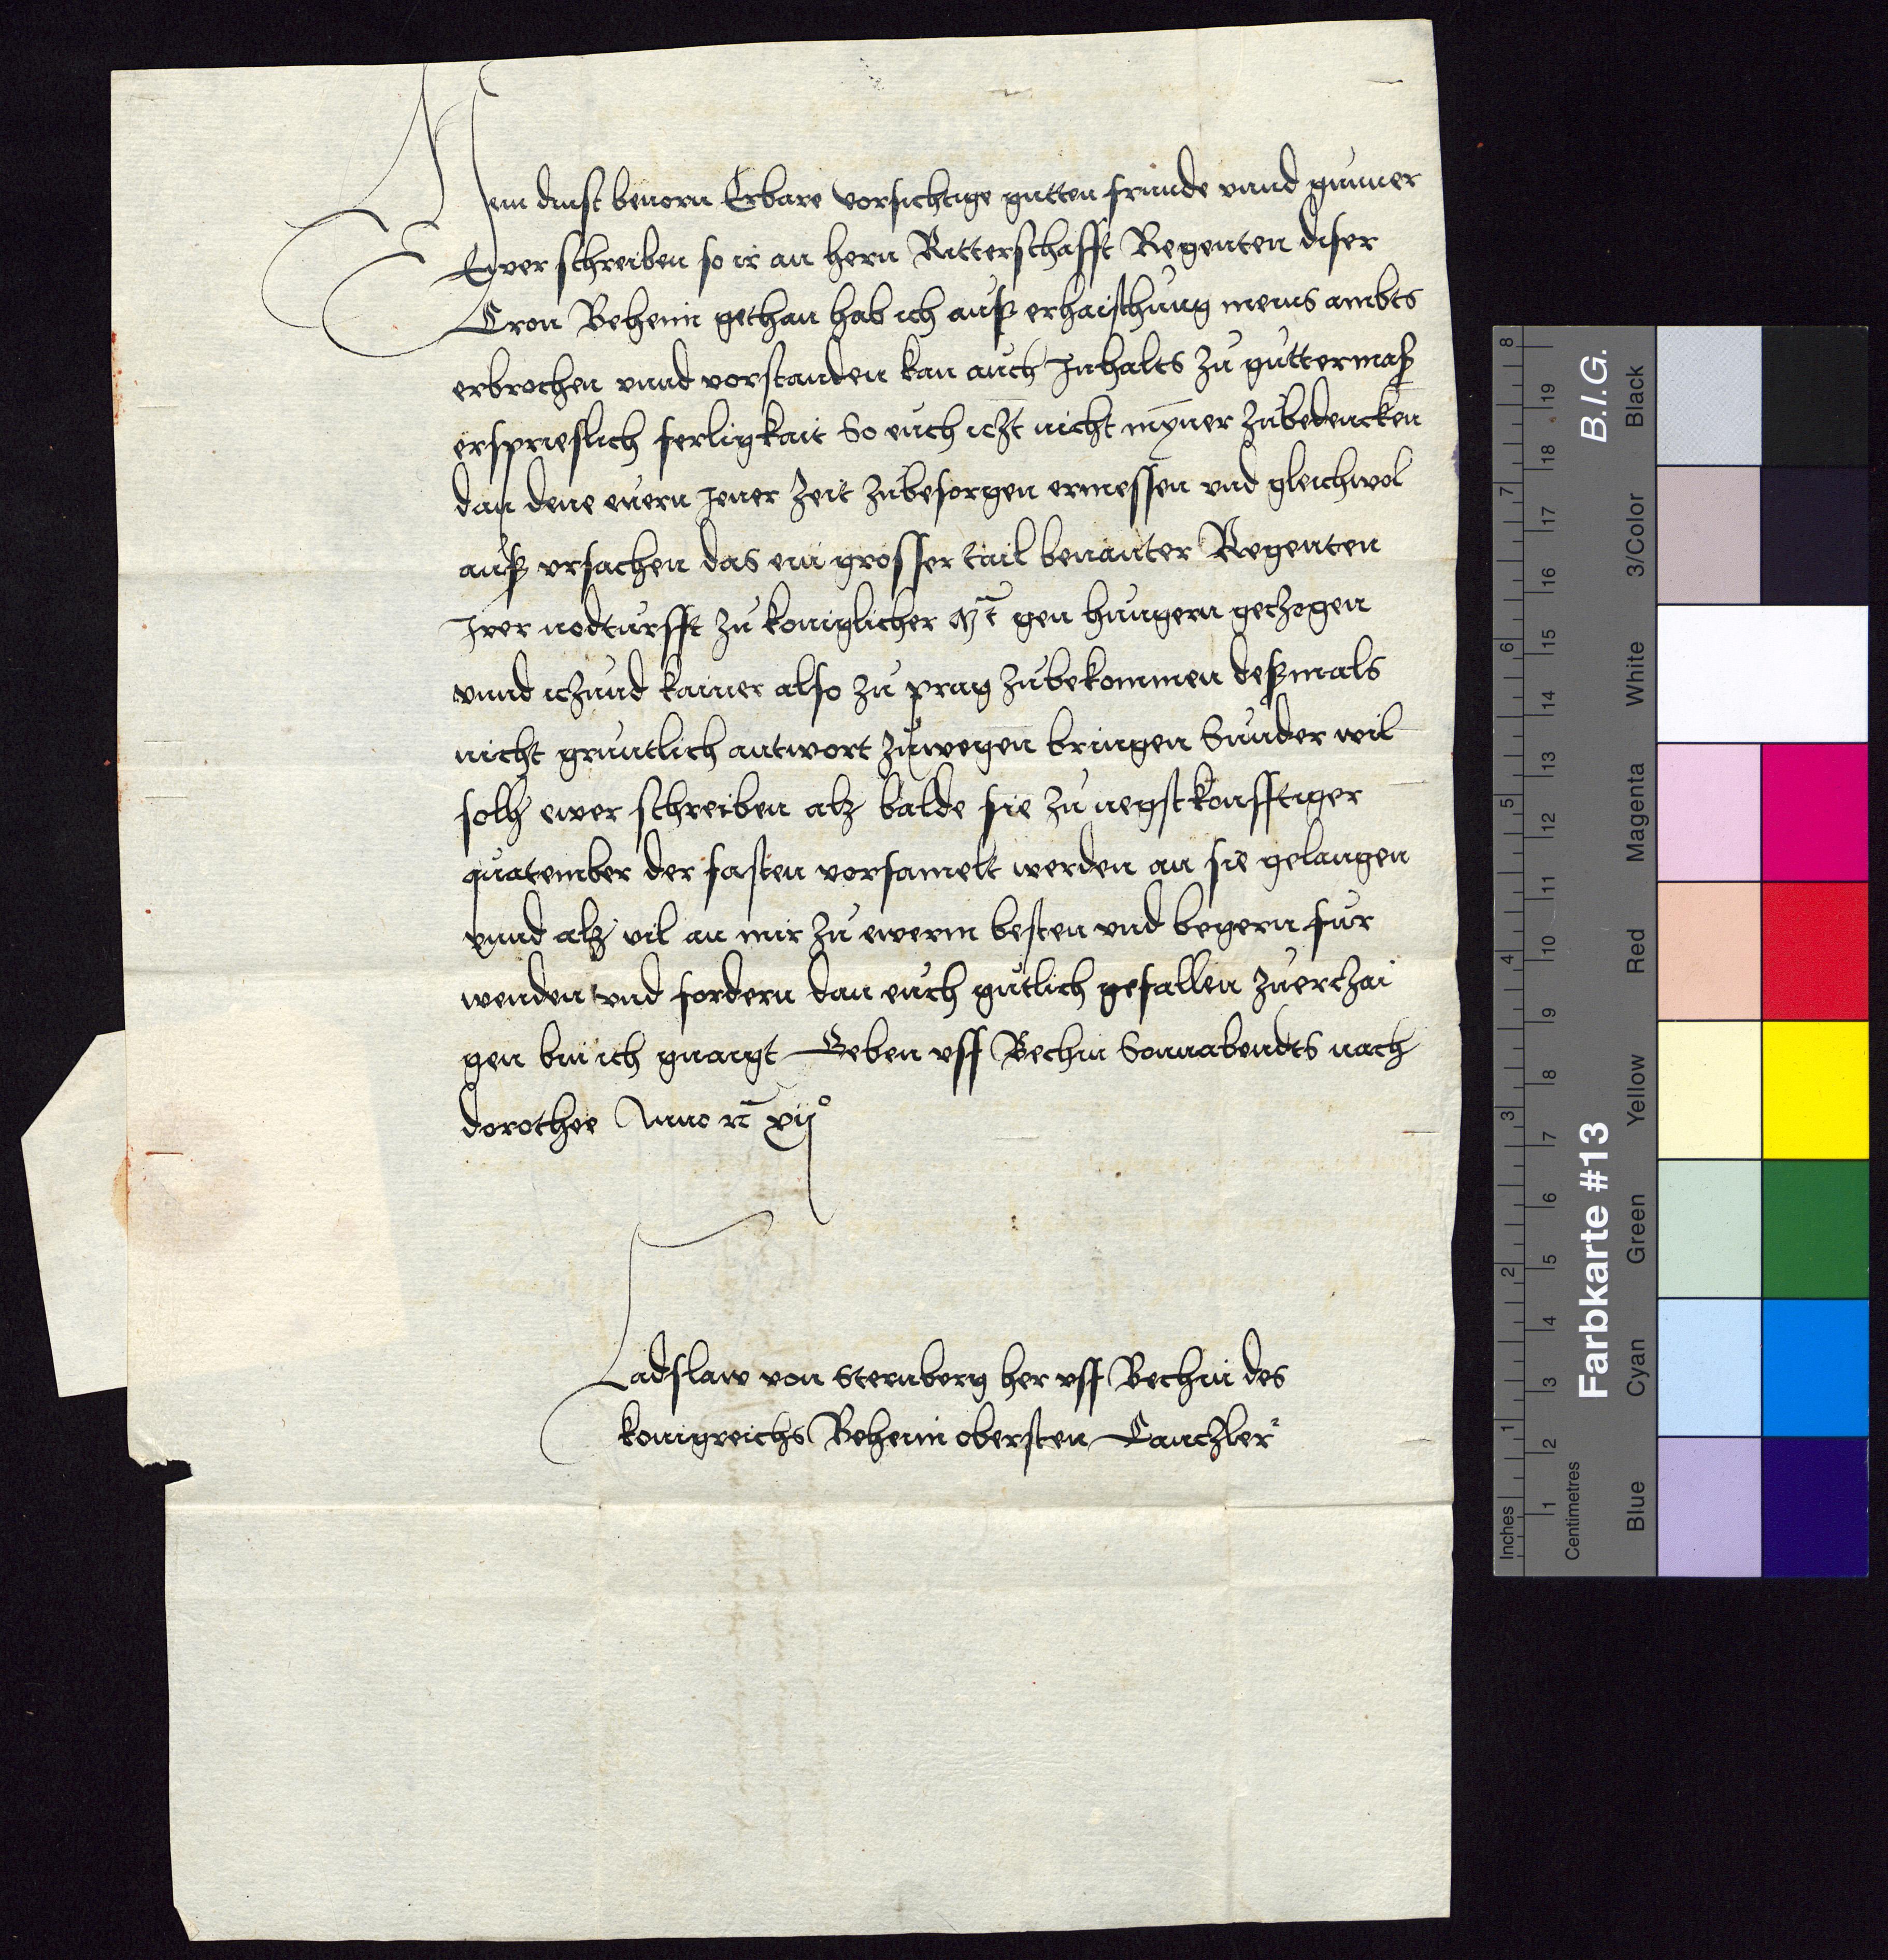 Mein dinst beuorn Erbare vorsichtige gutten frunde vnnd gunner
Ewer schreiben so ir an hern Ritterschafft Regenten diser
Cron Behemi gethan hab ich auß erhaischung meins ambts
erbrochen vnnd vorstanden kan auch Inhalts zu guttermaß
ersprieslich ferligkait So euch iczt nicht mÿner zubedencken
dan dene euern jener zeit zubesorgen ermessen vnd gleichwol
auß vrsachen das ein grosser tail benanter Regenten
Irer nodturfft zu koniglicher Mt gen hungern geczogen
vnnd iczund kainer also zu prag zubekommen deßmals
nicht gruntlich antwort zuwegen bringen Sunder wil
solh ewer schreiben alz balde sie zu negstkonfftiger
quatember der fasten vorsamelt werden an sie gelangen
vnnd alz vil an mir zu ewerm besten vnd begern fur
wenden vnd fordern dan euch gutlich gefallen zuerczai
gen bin ich gnaigt Geben vff Bechin Sonnabendts nach
dorothee Anno rc xijº
Ladslaw von Sternberg her vff Bechin des
konigreichs Behemi obersten Canczler
Farbkarte #13
B.I.G.
Inches
1 2 3 4 5 6 7 8
Centimetres
1 2 3 4 5 6 7 8 9 10 11 12 13 14 15 16 17 18 19
Blue
Cyan
Green
Yellow
Red
Magenta
White
3/Color
Black